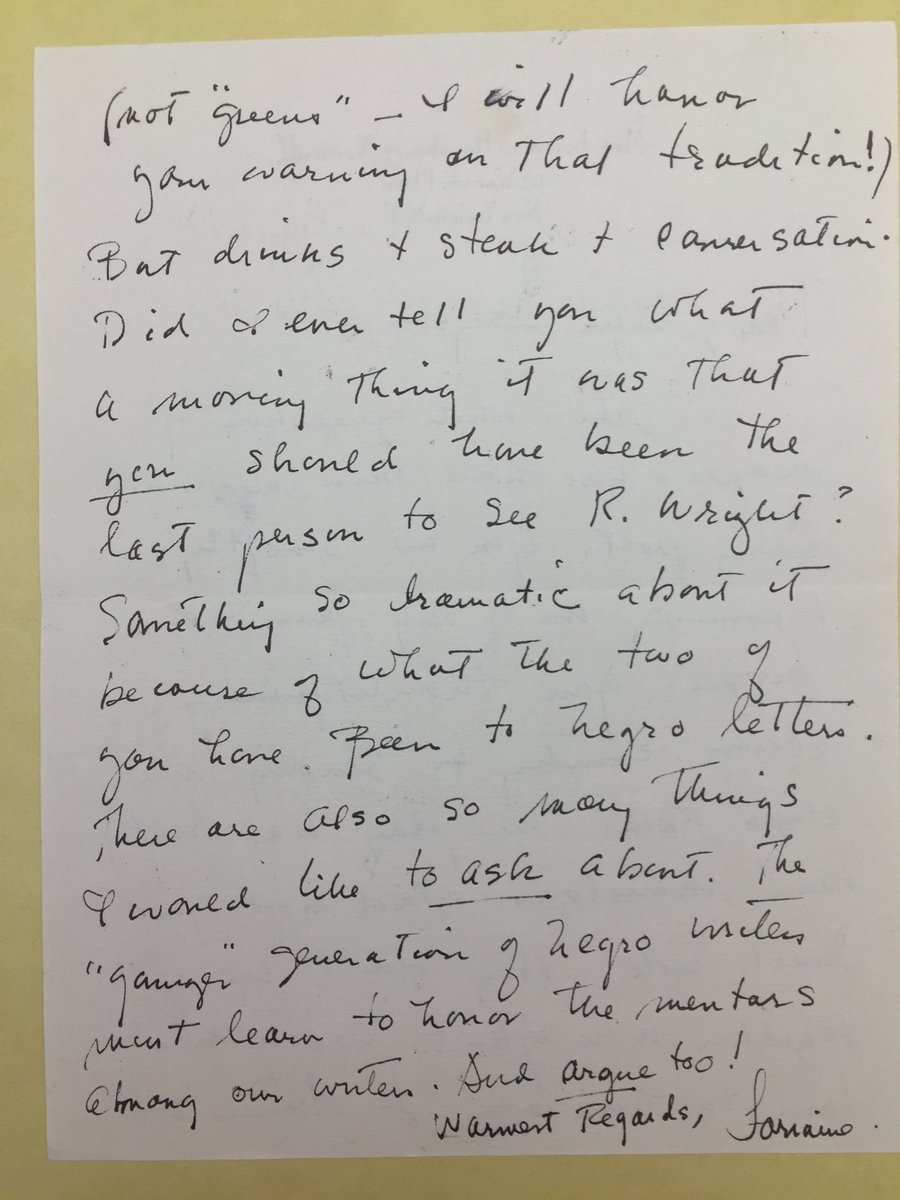 (not "greens" – I will honor
your warning on That tradition!)
But drinks + steak + conversation.
Did I ever tell you what
a moving thing it was that
you should have been the
last person to see R. Wright?
Something so dramatic about it
because of what the two of
you have. Been to negro letters.
There are also so many things
I would like to ask about. The
"younger" generation of negro writers
must learn to honor the mentors
among our writers. And argue too!
Warmest Regards, Lorraine.